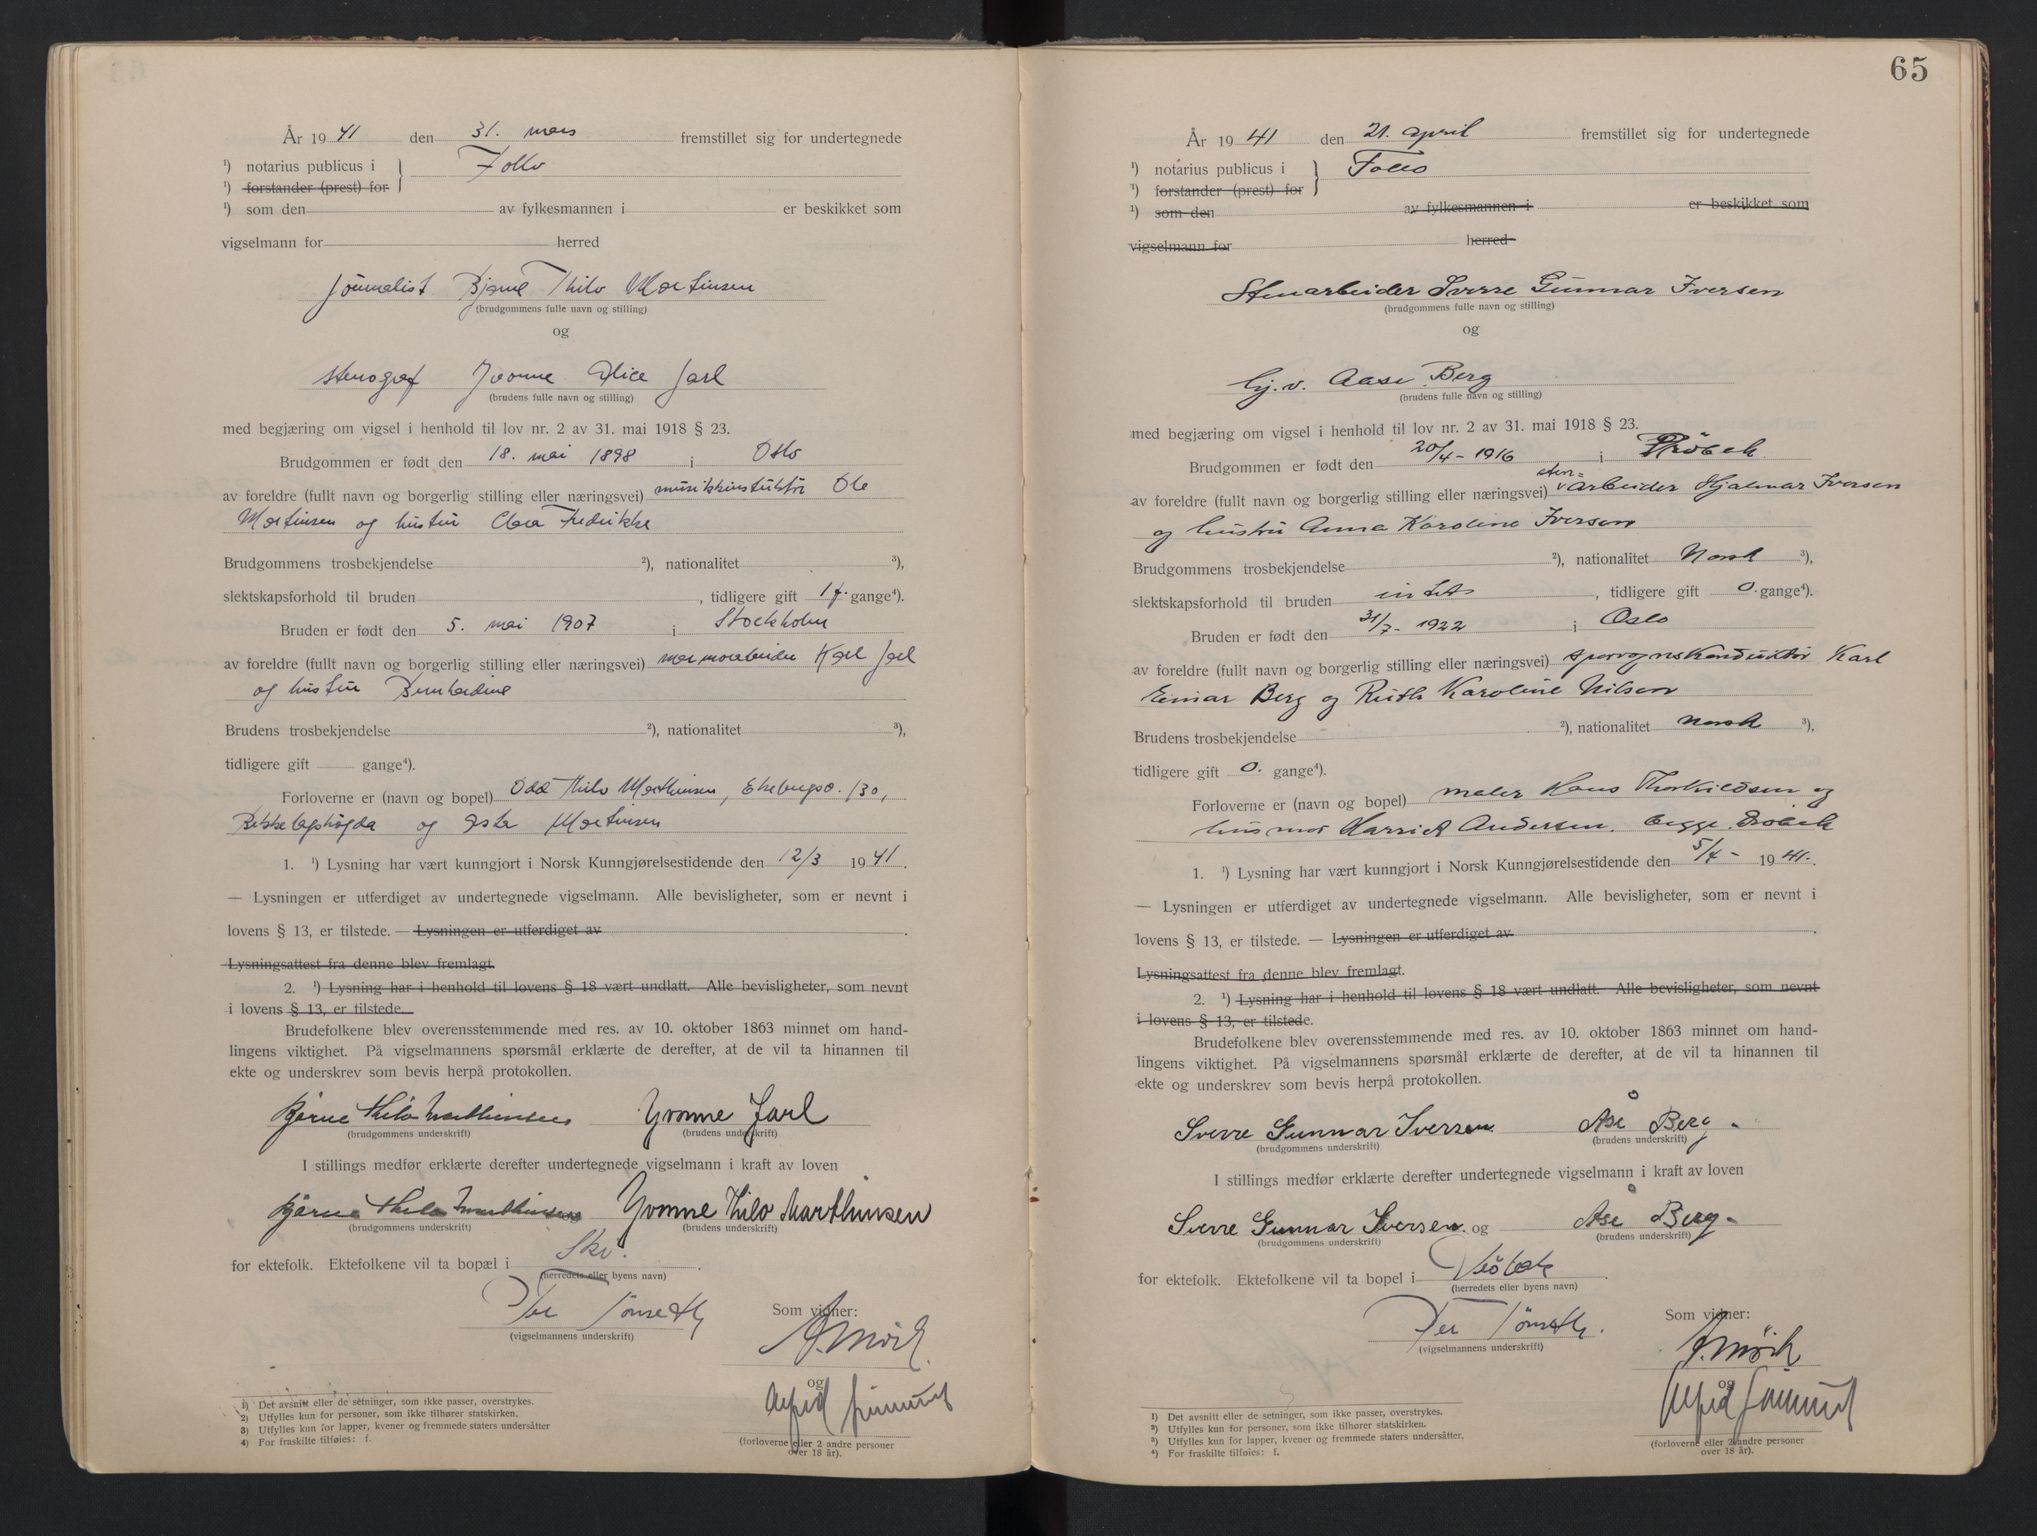 År 1941 den 31. mars fremstillet sig for undertegnede
¹) notarius publicus i Follo
¹) forstander (prest) for
¹) som den av fylkesmannen i er beskikket som
vigselmann for herred
journalist Bjarne Thilo Martinsen
(brudgommens fulle navn og stilling)
og
stenograf Yvonne Alice Jarl
(brudens fulle navn og stilling)
med begjæring om vigsel i henhold til lov nr. 2 av 31. mai 1918 § 23.
Brudgommen er født den 18. mai 1898 i Oslo
av foreldre (fullt navn og borgerlig stilling eller næringsvei) musikkinstruktør Ole
Martinsen og hustru Clara Fredrikke
Brudgommens trosbekjendelse ²), nationalitet ³),
slektskapsforhold til bruden , tidligere gift 1 f. gange⁴).
Bruden er født den 5. mai 1907 i Stockholm
av foreldre (fullt navn og borgerlig stilling eller næringsvei) marmorarbeider Karl Jarl
og hustru Bernhardine
Brudens trosbekjendelse ²), nationalitet ³),
tidligere gift gange⁴).
Forloverne er (navn og bopel) Odd Thilo Marthinsen, Ekebergv. 130,
Bekkelagshøgda og Asta Martinsen
1. ¹) Lysning har vært kunngjort i Norsk Kunngjørelsestidende den 12/3 1941.
— Lysningen er utferdiget av undertegnede vigselmann. Alle bevisligheter, som er nevnt i
lovens § 13, er tilstede. — Lysningen er utferdiget av .
Lysningsattest fra denne blev fremlagt.
2. ¹) Lysning har i henhold til lovens § 18 vært undlatt. Alle bevisligheter, som nevnt
i lovens § 13, er tilstede.
Brudefolkene blev overensstemmende med res. av 10. oktober 1863 minnet om hand-
lingens viktighet. På vigselmannens spørsmål erklærte de derefter, at de vil ta hinannen til
ekte og underskrev som bevis herpå protokollen.
Bjarne Thilo Marthinsen Yvonne Jarl
(brudgommens underskrift) (brudens underskrift)
I stillings medfør erklærte derefter undertegnede vigselmann i kraft av loven
Bjarne Thilo Marthinsen Yvonne Thilo Marthinsen
(brudgommens underskrift) (brudens underskrift)
for ektefolk. Ektefolkene vil ta bopæl i Ski.
(herredets eller byens navn)
Per Tønseth
(vigselmannens underskrift)
Som vidner:
A. Mörk.
og
Alfred
(forloverne eller 2 andre personer
over 18 år).
1) Det avsnitt eller de setninger, som ikke passer, overstrykes.
2) Utfylles kun for personer, som ikke tilhører statskirken.
3) Utfylles kun for lapper, kvener og fremmede staters undersåtter
4) For fraskilte tilføies: f.
65
År 1941 den 21. april fremstillet sig for undertegnede
¹) notarius publicus i Follo
¹) forstander (prest) for
¹) som den av fylkesmannen i er beskikket som
vigselmann for herred
Stenarbeider Sverre Gunnar Iversen
(brudgommens fulle navn og stilling)
og
hj.v. Aase Berg
(brudens fulle navn og stilling)
med begjæring om vigsel i henhold til lov nr. 2 av 31. mai 1918 § 23.
Brudgommen er født den 20/4 - 1916 i Dröbak
av foreldre (fullt navn og borgerlig stilling eller næringsvei) sten-arbeider Hjalmar Iversen
og hustru Anna Karoline Iversen
Brudgommens trosbekjendelse ²), nationalitet Norsk ³),
slektskapsforhold til bruden intet , tidligere gift 0. gange⁴).
Bruden er født den 31/7 - 1922 i Oslo
av foreldre (fullt navn og borgerlig stilling eller næringsvei) sporvognskonduktör Karl
Einar Berg og Ruth Karoline Nilsen
Brudens trosbekjendelse ²), nationalitet norsk ³),
tidligere gift 0. gange⁴).
Forloverne er (navn og bopel) maler Hans Thorkildsen og
husmor Harriet Andersen. begge Dröbak
1. ¹) Lysning har vært kunngjort i Norsk Kunngjørelsestidende den 5/4 - 1941.
— Lysningen er utferdiget av undertegnede vigselmann. Alle bevisligheter, som er nevnt i
lovens § 13, er tilstede. — Lysningen er utferdiget av .
Lysningsattest fra denne blev fremlagt.
2. ¹) Lysning har i henhold til lovens § 18 vært undlatt. Alle bevisligheter, som nevnt
i lovens § 13, er tilstede.
Brudefolkene blev overensstemmende med res. av 10. oktober 1863 minnet om hand-
lingens viktighet. På vigselmannens spørsmål erklærte de derefter, at de vil ta hinannen til
ekte og underskrev som bevis herpå protokollen.
Sverre Gunnar Iversen Åse Berg
(brudgommens underskrift) (brudens underskrift)
I stillings medfør erklærte derefter undertegnede vigselmann i kraft av loven
Sverre Gunnar Iversen og Åse Berg
(brudgommens underskrift) (brudens underskrift)
for ektefolk. Ektefolkene vil ta bopel i Dröbak
(herredets eller byens navn)
Per Tønseth.
(vigselmannens underskrift)
Som vidner:
A. Mörk
og
Alfred
(forloverne eller 2 andre personer
over 18 år).
¹) Det avsnitt eller de setninger, som ikke passer, overstrykes.
²) Utfylles kun for personer, som ikke tilhører statskirken.
³) Utfylles kun for lapper, kvener og fremmede staters undersåtter.
⁴) For fraskilte tilføies: f.